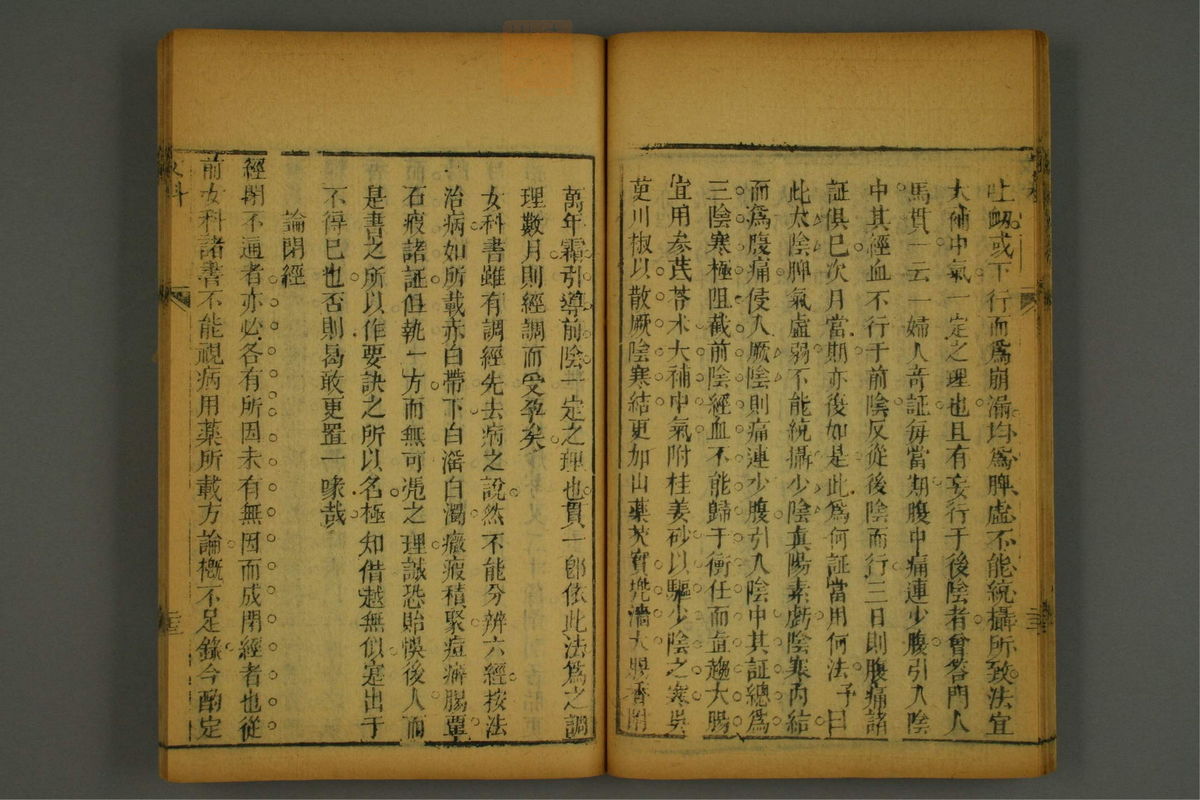 吐衂或下行而爲崩漏均爲脾虛不能統攝所致法宜
大補中氣一定之理也且有妄行于後陰者曾答門人
馬貫一云一婦人竒証每當期腹中痛連少腹引入陰
中其經血不行于前陰反從後陰而行三日則腹痛諸
証俱已次月當期亦復如是此爲何証當用何法予曰
此太陰脾氣虛弱不能統攝少陰眞陽素虧陰寒內結
而爲腹痛侵入厥陰則痛連少腹引入陰中其証總爲
三陰寒極阻截前陰經血不能歸于衝任而直趨大腸
宜用參芪苓朮大補中氣附桂姜砂以驅少陰之寒吳
萸川椒以散厥陰寒結更加山藥芡實兠濇大腸香附
萬年霜引導前陰一定之理也貫一卽依此法爲之調
理數月則經調而受孕矣
女科書雖有調經先去病之說然不能分辨六經按法
治病如所載赤白帶下白濇白濁癥瘕積聚痘癖腸覃
石瘕諸証但執一方而無可凴之理誠恐貽悞後人而
是書之所以作要訣之所以名極知借越無似寔出于
不得已也否則曷敢更置一喙哉
論閉經
經閉不通者亦必各有所因未有無因而成閉經者也從
前女科諸書不能視病用藥所載方論槪不足錄今酌定
女科